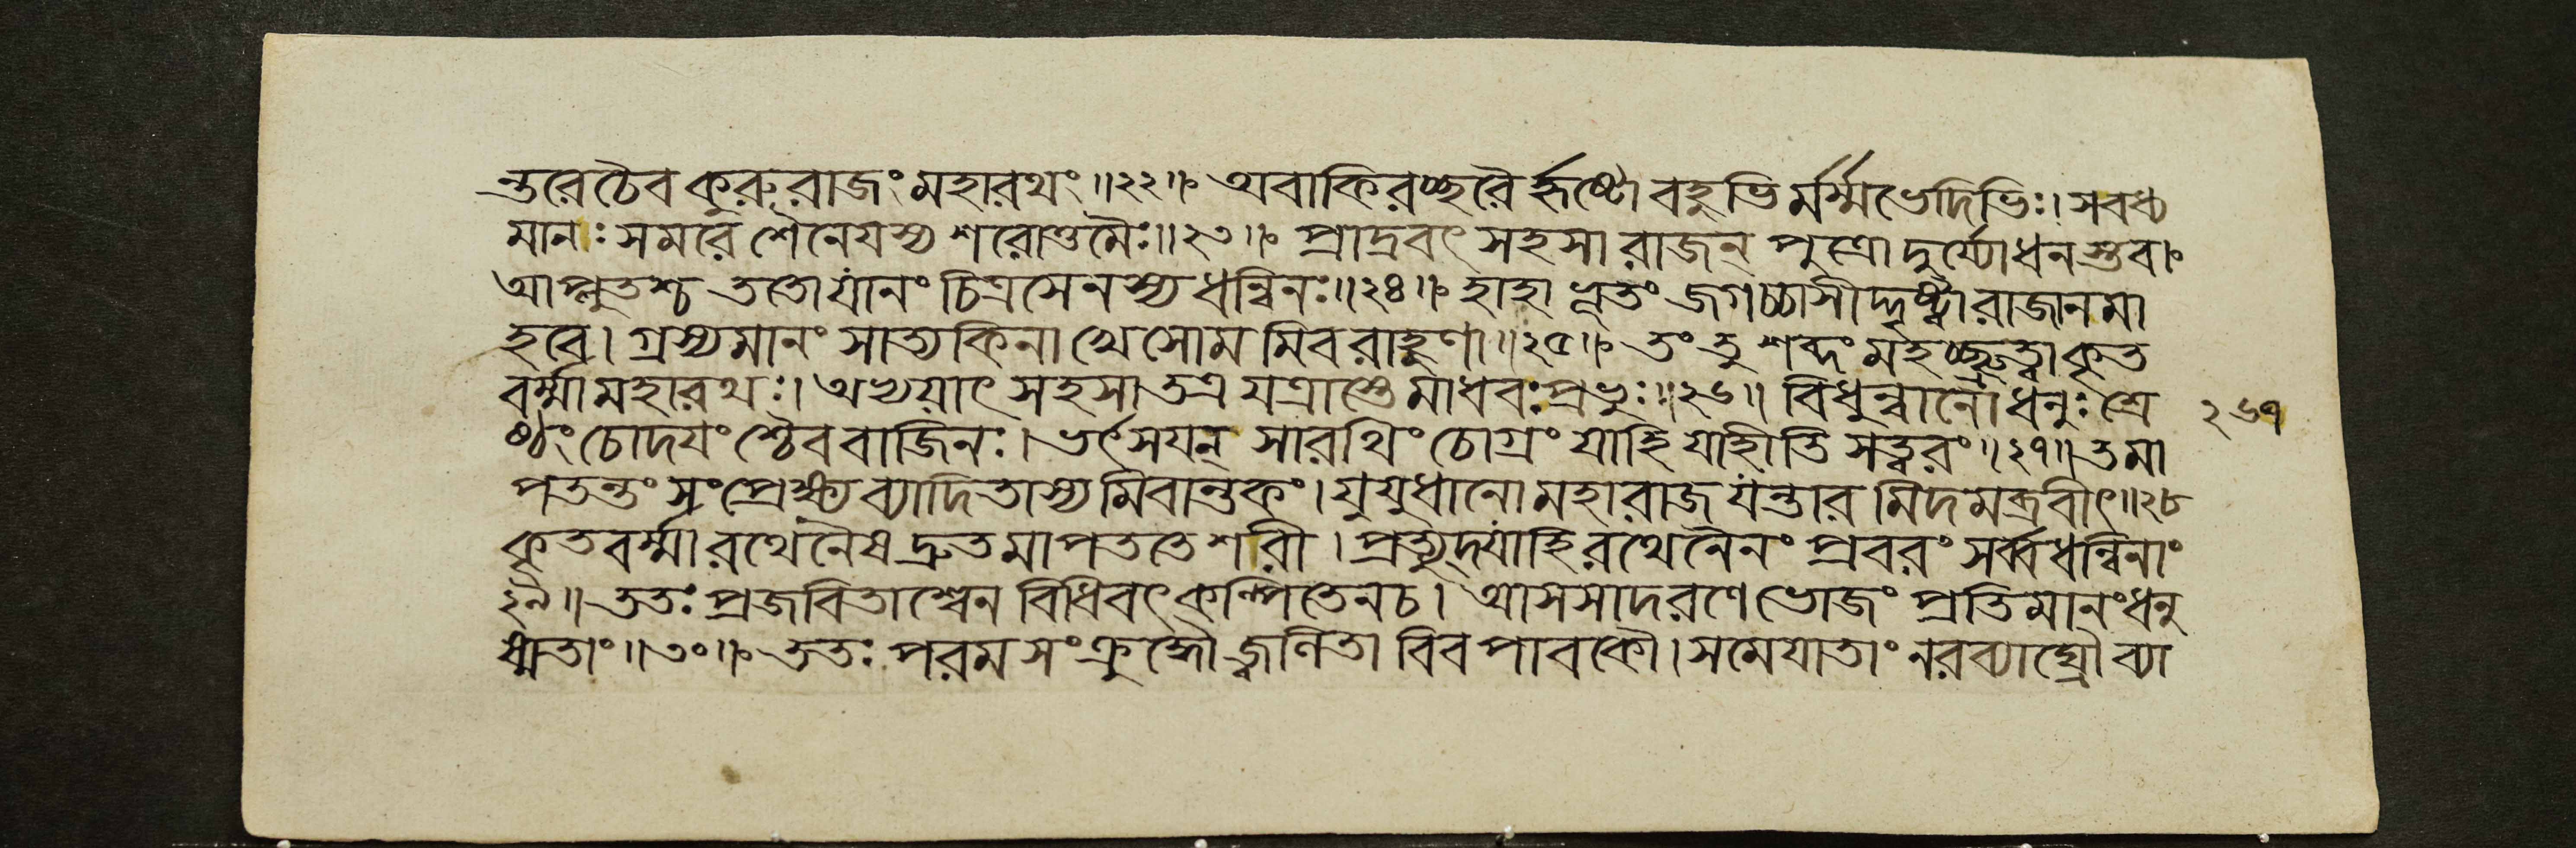 ন্তরেচৈব কুরুরাজং মহারথং॥২২॥ অবাকিরচ্ছরৈর্হৃষ্টো বহুভির্মর্ম্মভেদিভিঃ। সবধ্য
মানঃ সমরে শৈনেযস্য শরোত্তমৈঃ॥২৩॥ প্রাদ্রবৎ সহসা রাজন্ পুত্রো দুর্য্যোধনস্তবা
আপ্লুতশ্চ ততোযানং চিত্রসেনস্য ধন্বিনঃ॥২৪॥ হাহাভূতং জগচ্চাসীদ্দৃষ্ট্বা রাজানমা
হবে। গ্রস্যমানং সাত্যকিনা খেসোমমিব রাহুণা॥২৫॥ তং তু শব্দং মহচ্ছ্রুত্বা কৃত
বর্ম্মা মহারথঃ। অভ্যয়াৎ সহসা তত্র যত্রাস্তে মাধবঃ প্রভুঃ॥২৬॥ বিধুন্বানো ধনুঃ শ্রে ২৬৭
ষ্ঠং চোদযংশ্চৈব বাজিনঃ। ভর্ৎসযন্ সারথিং চোগ্রং যাহি যাহীতি সত্বরং॥২৭॥ তমা
পতন্তং সংপ্রেক্ষ্য ব্যাদিতাস্যমিবান্তকং। যুযুধানো মহারাজ যন্তারমিদমব্রবীৎ॥২৮
কৃতবর্ম্মা রথেনৈষ দ্রুতমাপততে শরী। প্রত্যুদ্যাহি রথেনৈনং প্রবরং সর্ব্বধন্বিনাং
২৯॥ ততঃ প্রজবিতাশ্বেন বিধিবৎ কল্পিতেনচ। আসসাদ রণে ভোজং প্রতিমানং ধনু
ষ্মতাং॥৩০॥ ততঃ পরমসংক্রুদ্ধৌ জ্বলিতাবিব পাবকৌ। সমেযাতাং নরব্যাঘ্রৌ ব্যা